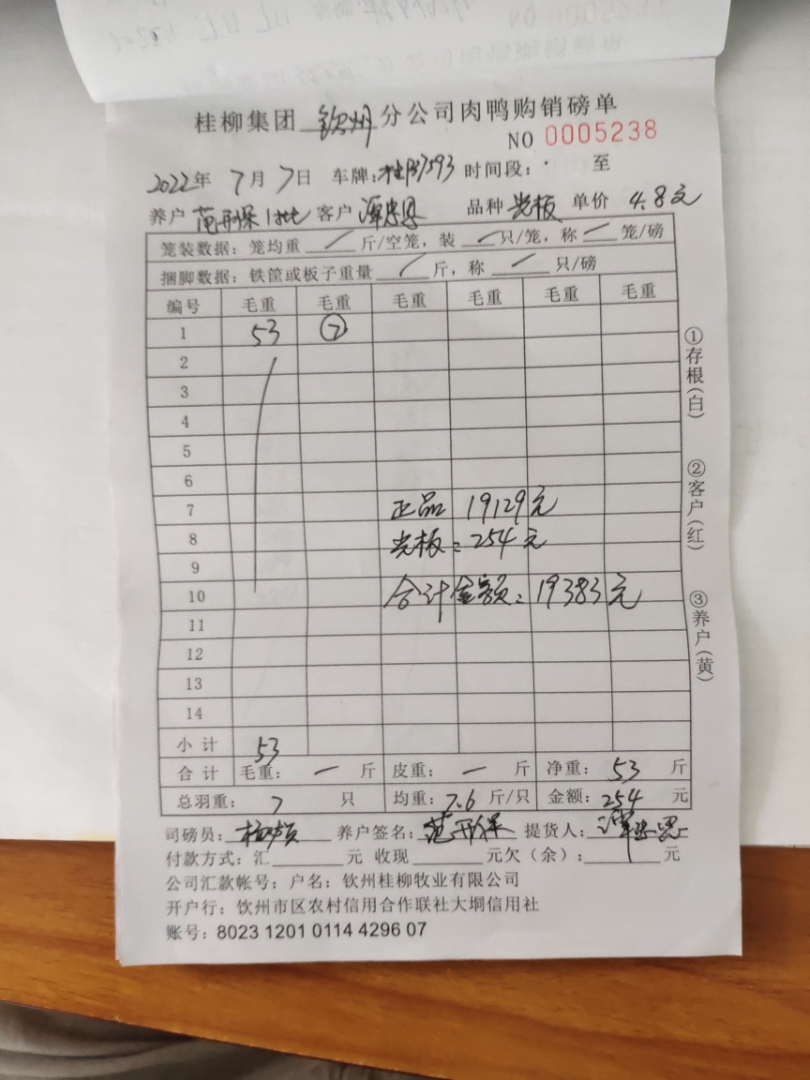 桂柳集团 钦州 分公司肉鸭购销磅单
NO 0005238
2022年 7月 7日 车牌: 时间段: 至
养户 范开保 1批 客户 品种 光板 单价 4.8元
笼装数据:笼均重 / 斤/空笼,装 / 只/笼,称 / 笼/磅
捆脚数据:铁筐或板子重量 / 斤,称 / 只/磅
编号 毛重 毛重 毛重 毛重 毛重 毛重
1 53 ⑦
2
3
4
5
6
7 正品 19129元
8 光板:254元
9
10 合计金额:19383元
11
12
13
14
小计 53
合计 毛重: — 斤 皮重: — 斤 净重: 53 斤
总羽重: 7 只 均重:7.6 斤/只 金额:254 元
司磅员: 养户签名:范开保 提货人:
付款方式:汇 元 收现 元欠(余): 元
公司汇款帐号:户名:钦州桂柳牧业有限公司
开户行:钦州市区农村信用合作联社大垌信用社
账号:8023 1201 0114 4296 07
①存根(白)
②客户(红)
③养户(黄)